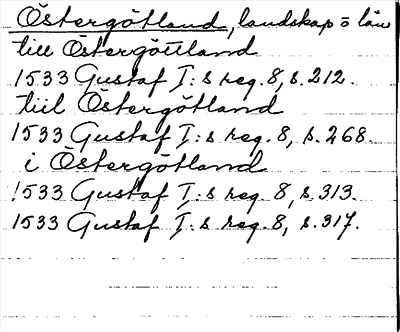 Östergötland, landskap o län
till Östergöttland
1533 Gustaf I:s reg. 8, s. 212.
till Östergötland
1533 Gustaf I:s reg. 8, s. 268.
i Östergötland
1533 Gustaf I:s reg. 8, s. 313.
1533 Gustaf I:s reg. 8, s. 317.